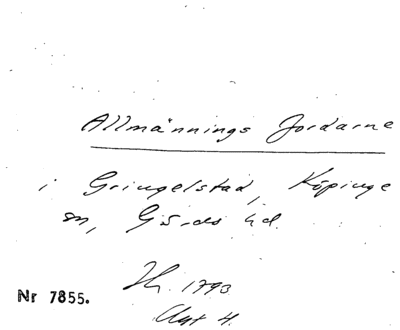 Allmännings Jordarne
i Gringelstad, Köpinge
sn, Gärds hd.
1793
Nr 7855.
Akt 4.